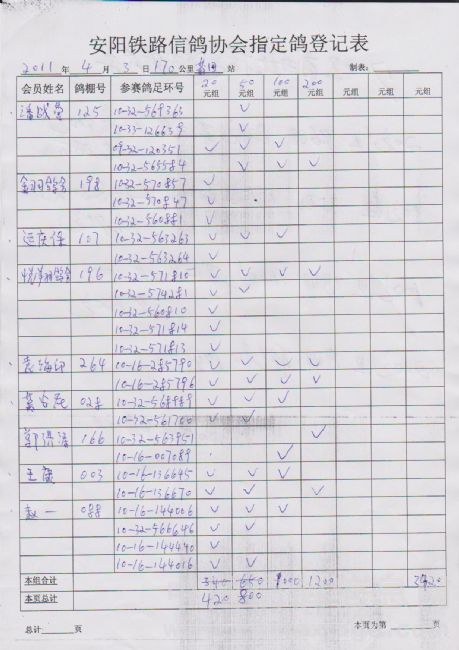 安阳铁路信鸽协会指定鸽登记表
2011 年 4 月 3 日 170 公里 站 制表:
会员姓名 鸽棚号 参赛鸽足环号 20元组 50元组 100元组 200元组 元组 元组 元组
125 10-32-569363 ✓
10-33-126639 ✓
09-32-120351 ✓ ✓ ✓
10-32-565584 ✓ ✓ ✓
198 10-32-570857 ✓
10-32-570847 ✓
10-32-560881 ✓
运庆保 107 10-32-563263 ✓ ✓ ✓
10-32-563264 ✓
196 10-32-571810 ✓ ✓ ✓ ✓
10-32-574281 ✓ ✓
10-32-560810 ✓
10-32-571814 ✓
10-32-571813 ✓
袁海印 264 10-16-285790 ✓ ✓ ✓ ✓
10-16-285796 ✓ ✓ ✓ ✓
028 10-32-568989 ✓ ✓ ✓
10-32-561700 ✓ ✓
166 10-32-563951 ✓
10-16-007089 ✓
003 10-16-136645 ✓ ✓ ✓
10-16-136670 ✓ ✓ ✓
赵一 088 10-16-144006 ✓ ✓ ✓
10-32-566646 ✓ ✓
10-16-144440 ✓
10-16-144016 ✓ ✓
本组合计 340 650 1000 1200 3420
本页总计 420 800
总计 页 本页为第 页